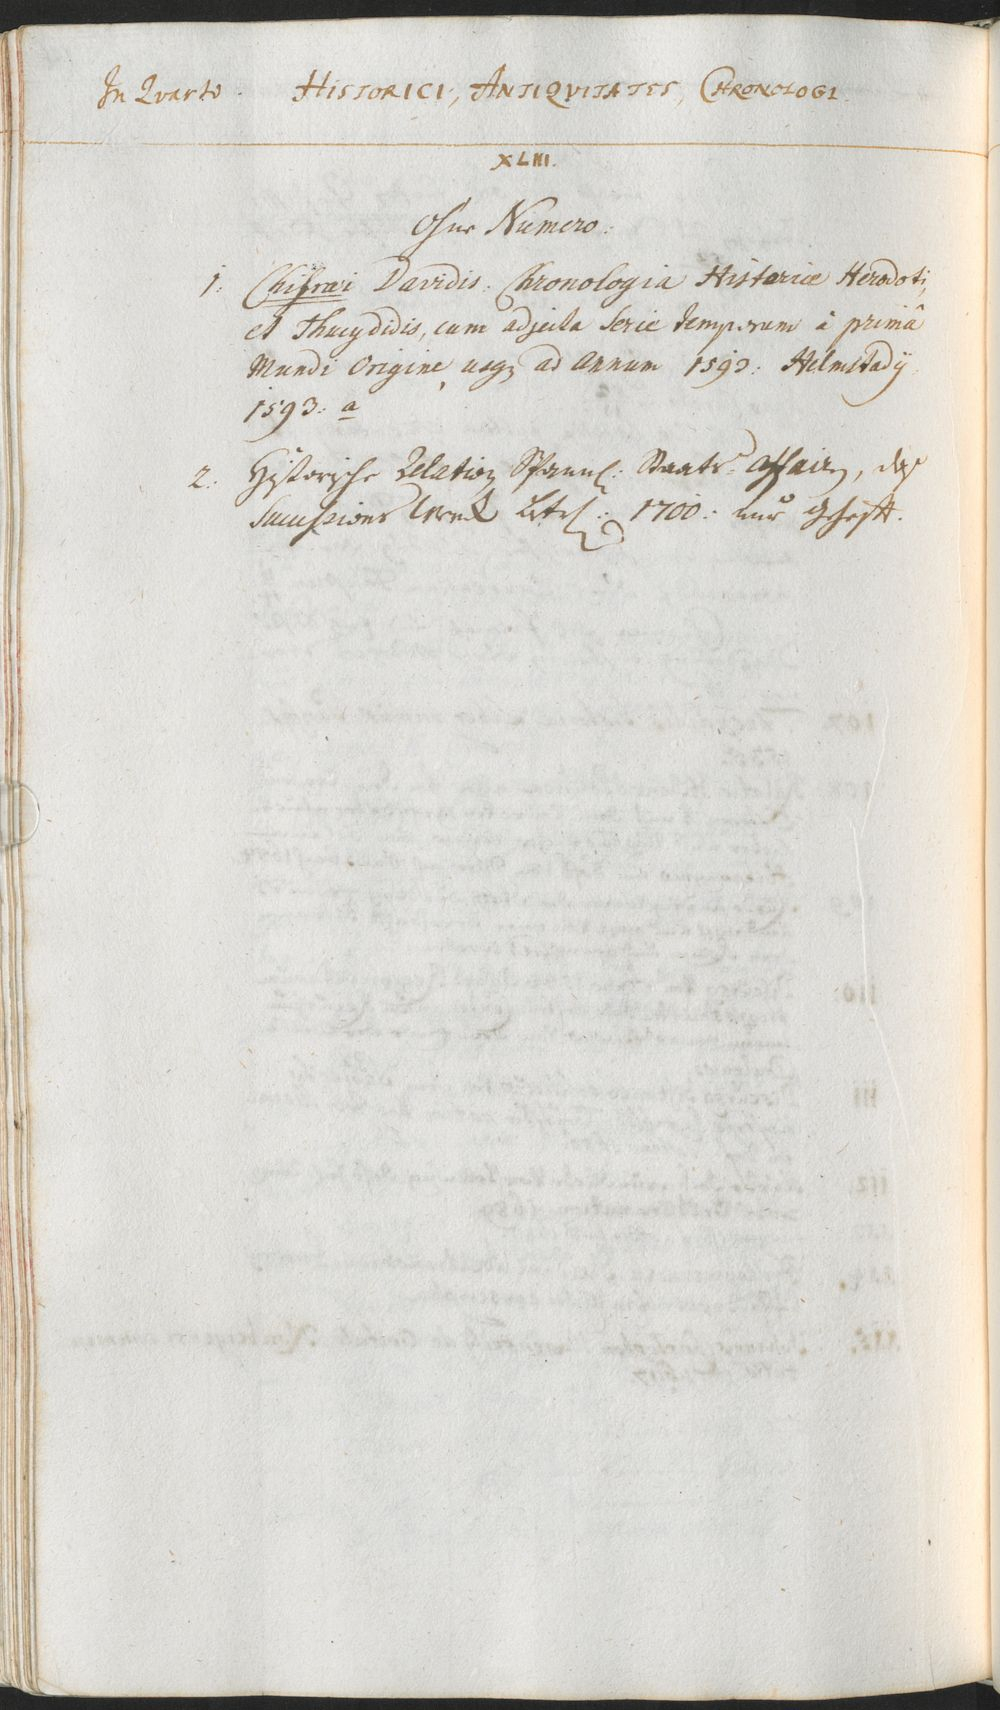 In Qvarto. HISTORICI, ANTIQVITATES, CHRONOLOGI.
XLIII.
Ohne Numero:
1: Chitræi Davidis: Chronologia Historiæ Herodoti,
et Thucydidis, cum adjecta Serie temporum â primâ
Mundi Origine, usq; ad Annum 1593: Helmstadÿ
1593: a
2: Historische Relation Spanis: Staats-Affairen, das
Successions Werck betrf: 1700: nur geheft.